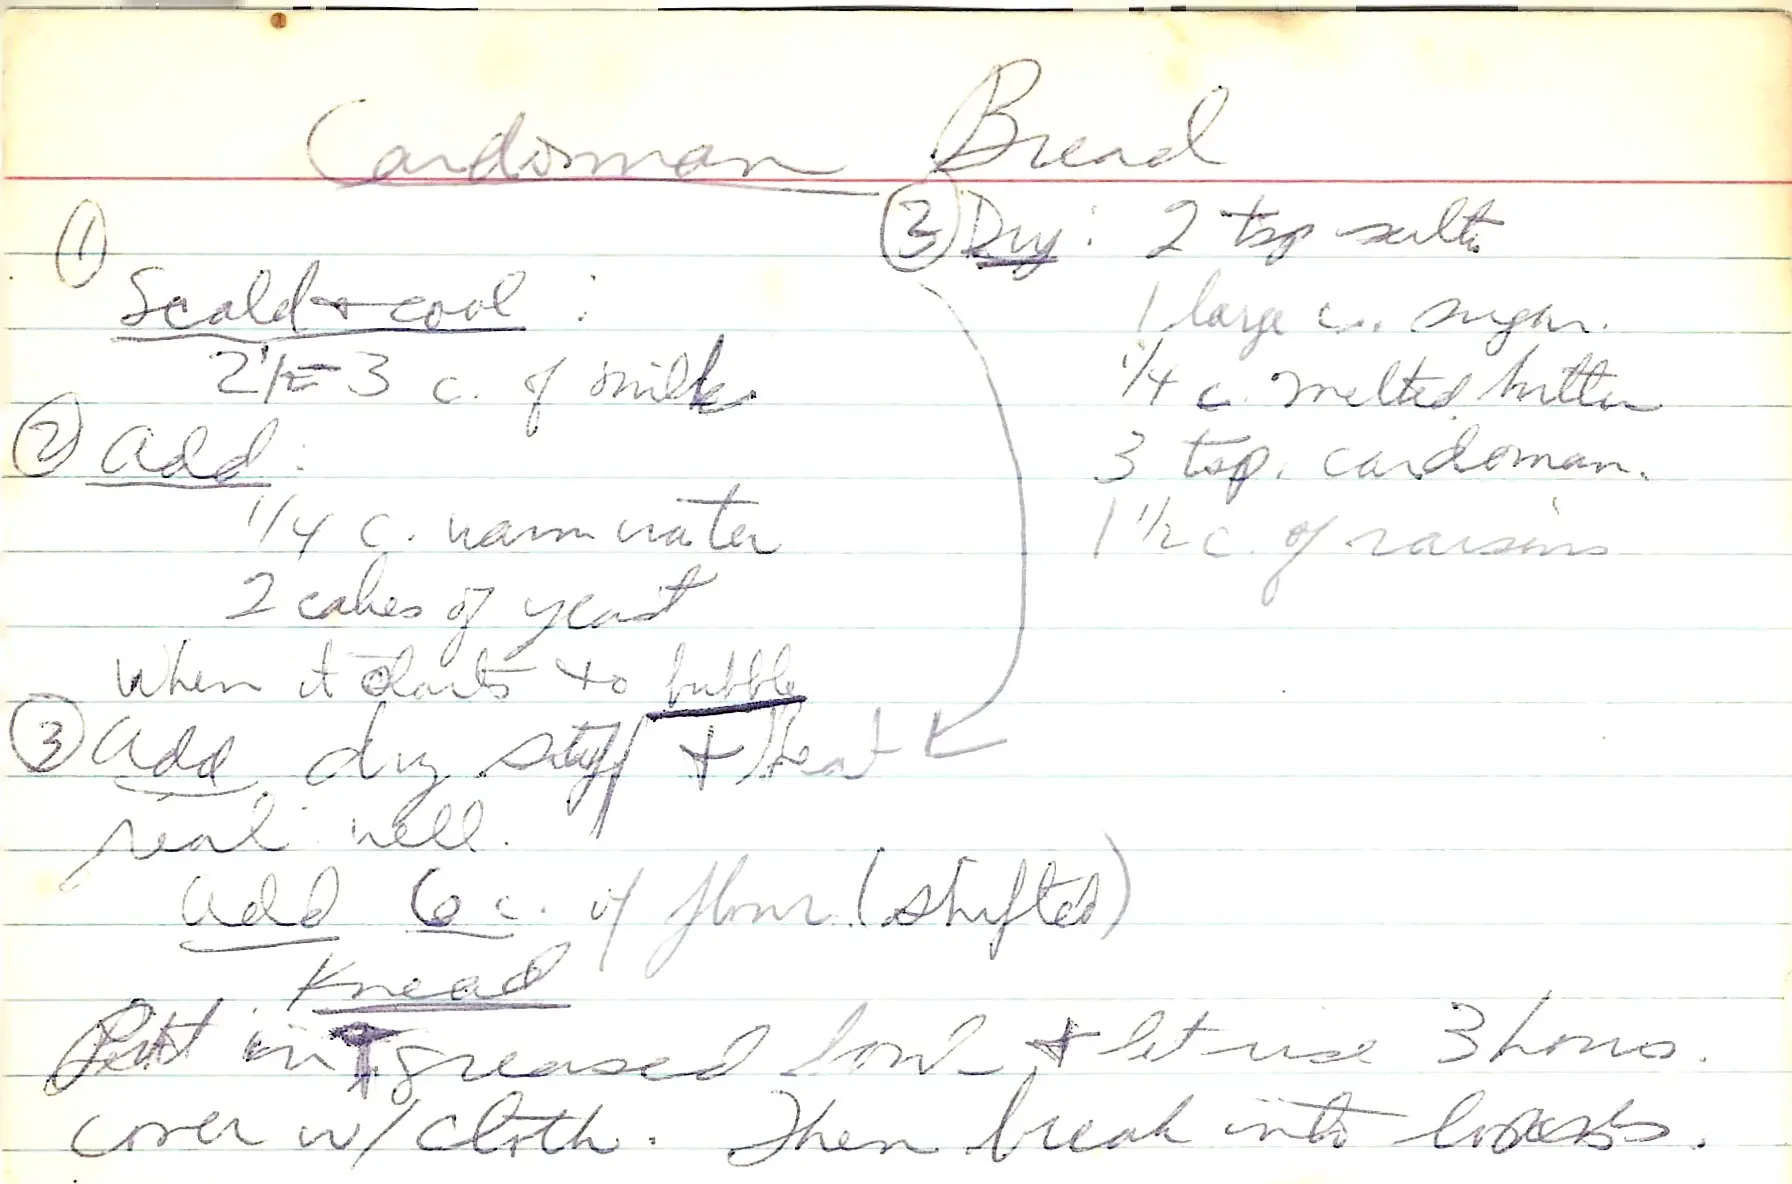 Cardoman Bread
①
Scald + cool :
2 1/2 - 3 c. of milk.
② Add :
1/4 c. warm water
2 cakes of yeast
When it starts to bubble
③ Add dry stuff + beat
real well.
③ Dry : 2 tsp salt
1 large c. sugar.
1/4 c. melted butter
3 tsp. cardoman.
1 1/2 c. of raisins
Add 6 c. of flour (shifted)
Knead
Put in greased bowl + let rise 3 hours.
cover w/ cloth. Then break into loaves.